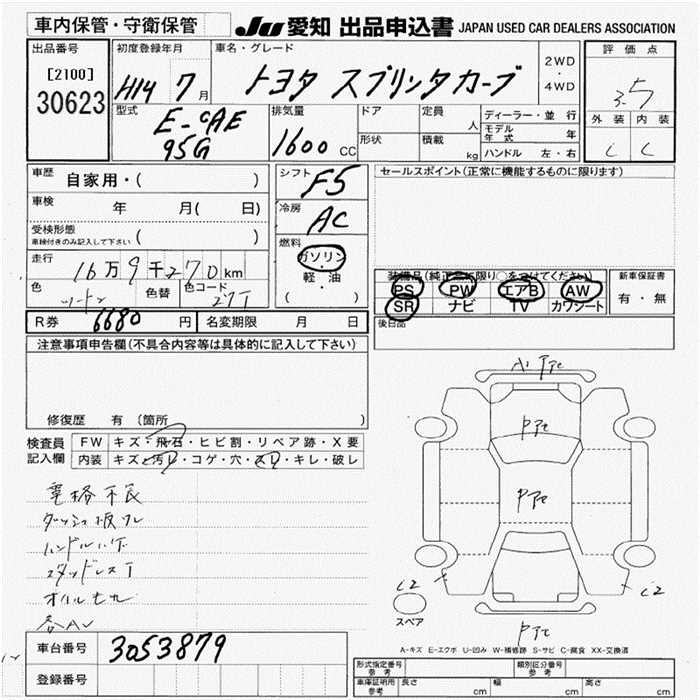 車内保管・守衛保管
JU 愛知 出品申込書 JAPAN USED CAR DEALERS ASSOCIATION
出品番号
[2100]
30623
初度登録年月
H14 7月
車名・グレード
トヨタ スプリンタカーブ
2WD
・
4WD
評価点
3.5
外装 内装
C C
型式
E-CAE
95G
排気量
1600 CC
ドア
形状
定員
人
積載
kg
ディーラー・並行
モデル年式 年
ハンドル 左・右
車歴
自家用・( )
車検
年 月( 日)
受検形態
車検付きのみ記入して下さい ( )
走行
16万9千270km
色
ツートン
色替
色コード
27T
シフト
F5
冷房
AC
燃料
ガソリン
軽・油
( )
セールスポイント(正常に機能するものに限ります)
装備品(純正品に限り○をつけてください)
PS PW エアB AW
SR ナビ TV カワシート
新車保証書
有・無
後日品
R券 6680 円
名変期限 月 日
注意事項申告欄(不具合内容等は具体的に記入して下さい)
修復歴 有(箇所 )
検査員
記入欄
FW キズ・飛石・ヒビ割・リペア跡・X要
内装 キズ・汚レ・コゲ・穴・スレ・キレ・破レ
電格不良
ダッシュ板ワレ
スタッドレスT
C2
C2
スペア
A-キズ E-エクボ U-凹み W-補修跡 S-サビ C-腐食 XX-交換済
車台番号
3053879
登録番号
形式指定番号
参考
類別区分番号
参考
車庫証明用
参考
長さ cm
幅 cm
高さ cm